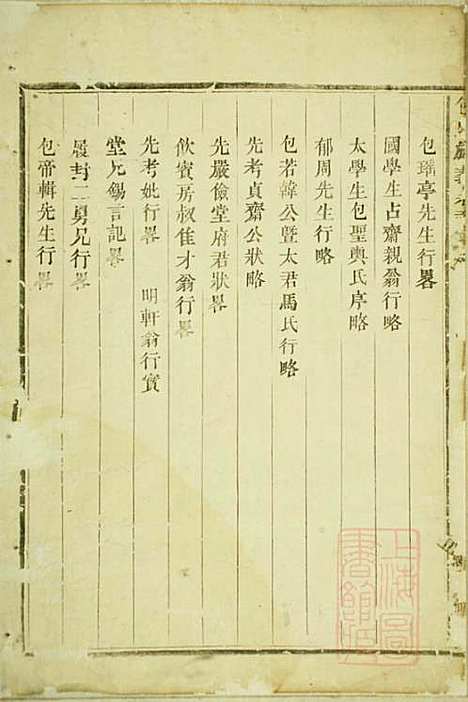 包瑤亭先生行畧
國學生占齋親翁行略
太學生包聖輿氏序略
郁周先生行略
包若韓公暨太君馬氏行略
先考貞齋公狀略
先嚴儉堂府君狀畧
飲賓房叔佳才翁行畧
先考妣行畧　明軒翁行實
堂兄錫言記畧
封二舅兄行畧
包帝輯先生行畧
上海圖書館藏